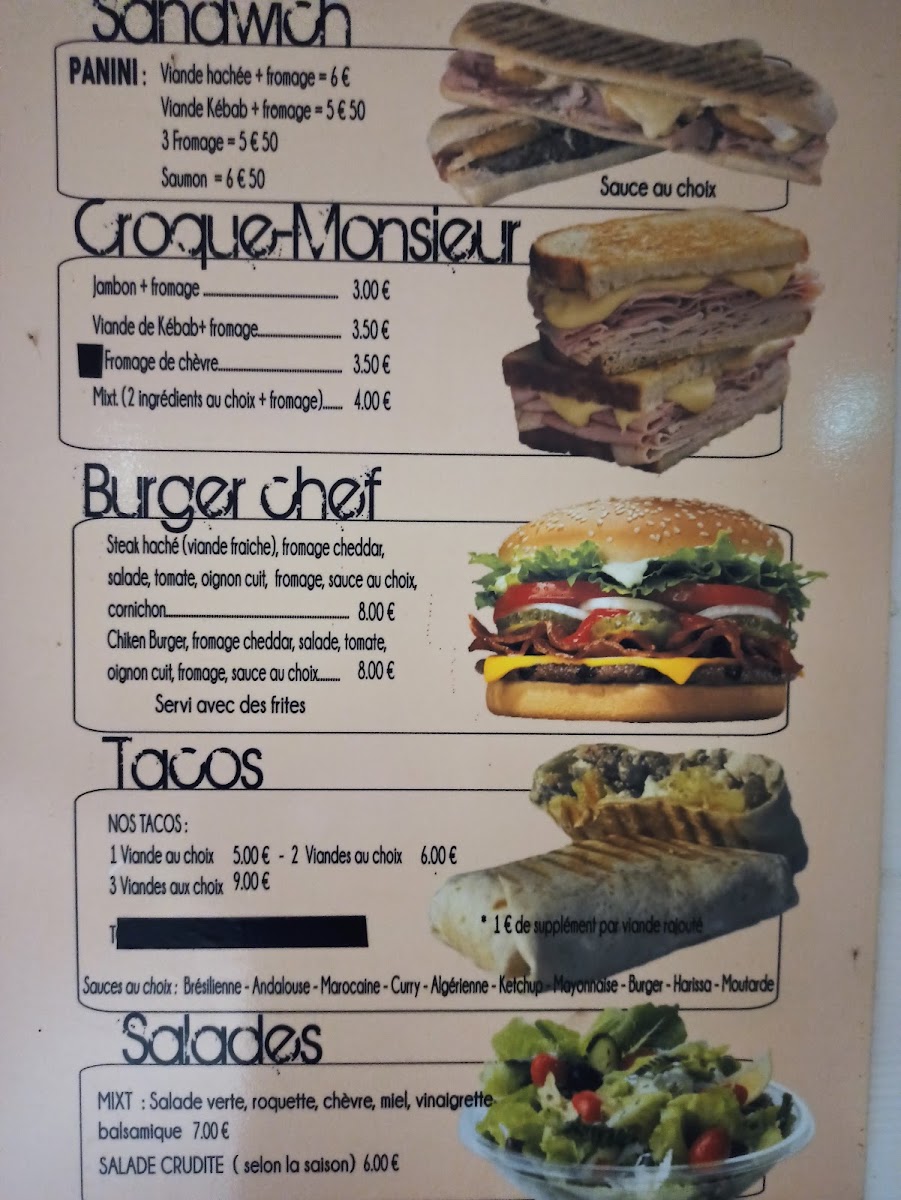 Sandwich
PANINI : Viande hachée + fromage = 6 €
Viande Kébab + fromage = 5 € 50
3 Fromage = 5 € 50
Saumon = 6 € 50
Sauce au choix
Croque-Monsieur
Jambon + fromage ........................ 3.00 €
Viande de Kébab+ fromage................ 3.50 €
Fromage de chèvre........................ 3.50 €
Mixt. (2 ingrédients au choix + fromage)...... 4.00 €
Burger chef
Steak haché (viande fraiche), fromage cheddar,
salade, tomate, oignon cuit, fromage, sauce au choix,
cornichon........................ 8.00 €
Chiken Burger, fromage cheddar, salade, tomate,
oignon cuit, fromage, sauce au choix....... 8.00 €
Servi avec des frites
Tacos
NOS TACOS :
1 Viande au choix 5.00 € - 2 Viandes au choix 6.00 €
3 Viandes aux choix 9.00 €
* 1 € de supplément par viande rajouté
Sauces au choix : Brésilienne - Andalouse - Marocaine - Curry - Algérienne - Ketchup - Mayonnaise - Burger - Harissa - Moutarde
Salades
MIXT : Salade verte, roquette, chèvre, miel, vinaigrette
balsamique 7.00 €
SALADE CRUDITE ( selon la saison) 6.00 €